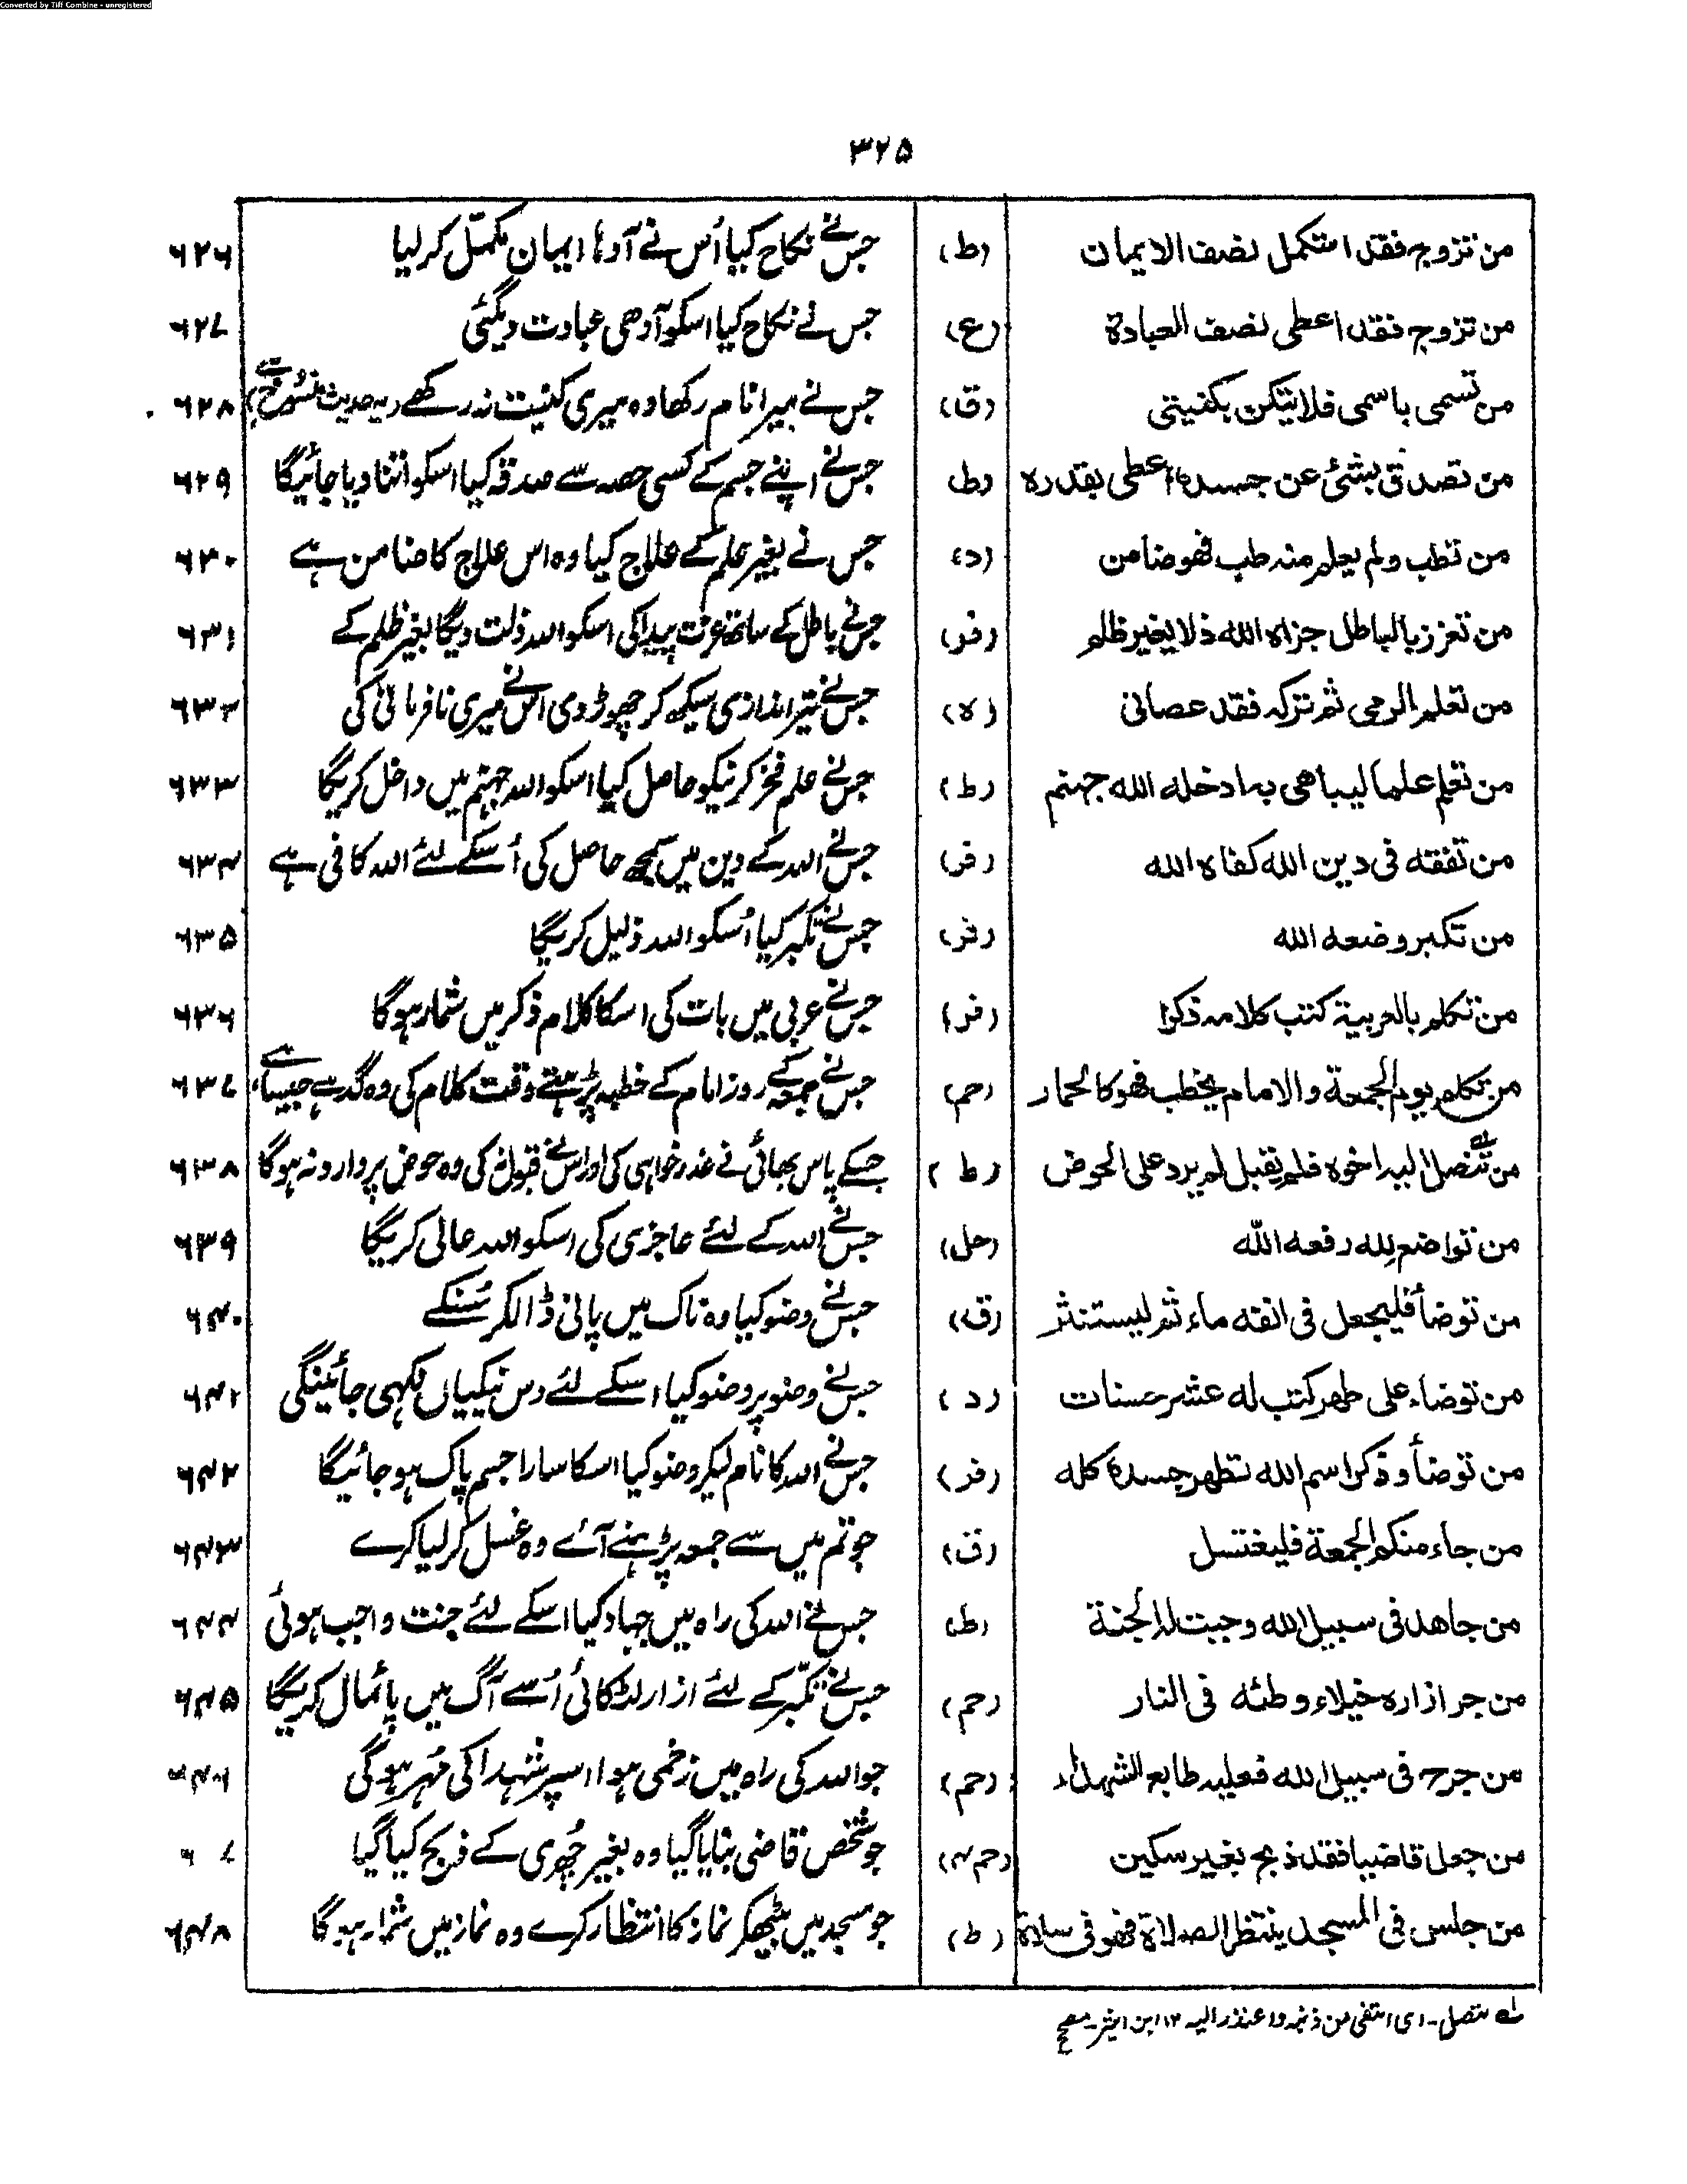 Converted by Tiff Combine - unregistered
۳۲۵
من تزوج فقد استکمل نصف الایمان (ط) جس نے نکاح کیا اُس نے آدہا ایمان مکمّل کر لیا ۶۲۶
من تزوج فقد اعطی نصف العبادة (ع) جس نے نکاح کیا اسکو آدھی عبادت دیگئی ۶۲۷
من تسمی باسمی فلا یتکن بکنیتی (ق) جس نے میرا نام رکھا وہ میری کنیت نہ رکھے (یہ حدیث منسوخ ہے) ۶۲۸
من تصدق بشئ عن جسده اعطی بقدره (ط) جس نے اپنے جسم کے کسی حصہ سے صدقہ کیا اسکو اتنا دیا جائیگا ۶۲۹
من تطب ولم یعلم منه طب فهو ضامن (د) جس نے بغیر علم کے علاج کیا وہ اس علاج کا ضامن ہے ۶۳۰
من تعزز بالباطل جزاه الله ذلا بغیر ظلم (فر) جس نے باطل کے ساتھ عزت پیدا کی اسکو اللہ ذلت دیگا بغیر ظلم کے ۶۳۱
من تعلم الرمی ثم ترکه فقد عصانی (ه) جس نے تیر اندازی سیکھ کر چھوڑ دی اس نے میری نافرمانی کی ۶۳۲
من تعلم علما لیباهی به ادخله الله جهنم (ط) جس نے علم فخر کرنیکو حاصل کیا اسکو اللہ جہنم میں داخل کریگا ۶۳۳
من تفقه فی دین الله کفاه الله (فر) جس نے اللہ کے دین میں سمجھ حاصل کی اُسکے لئے اللہ کافی ہے ۶۳۴
من تکبر وضعه الله (فر) جس نے تکبر کیا اُسکو اللہ ذلیل کریگا ۶۳۵
من تکلم بالعربیة کتب کلامه ذکرا (فر) جس نے عربی میں بات کی اسکا کلام ذکر میں شمار ہوگا ۶۳۶
من تکلم یوم الجمعة والامام یخطب فهو کالحمار (حم) جس نے جمعہ کے روز امام کے خطبہ پڑہتے وقت کلام کی وہ گدہے جیسا ہے ۶۳۷
من تنصل الیه اخوه فلم یقبل لم یرد علی الحوض (ط) جسکے پاس بھائی نے عذر خواہی کی اور اس نے قبول نہ کی وہ حوض پر وارد نہ ہوگا ۶۳۸
من تواضع لله رفعه الله (حل) جس نے اللہ کے لئے عاجزی کی اسکو اللہ عالی کریگا ۶۳۹
من توضأ فلیجعل فی انفه ماء ثم لیستنثر (ق) جس نے وضو کیا وہ ناک میں پانی ڈالکر سُنکے ۶۴۰
من توضاء علی طهر کتب له عشر حسنات (د) جس نے وضو پر وضو کیا اسکے لئے دس نیکیاں لکہی جائینگی ۶۴۱
من توضأ و ذکر اسم الله تطهر جسده کله (فر) جس نے اللہ کا نام لیکر وضو کیا اسکا سارا جسم پاک ہو جائیگا ۶۴۲
من جاء منکم الجمعة فلیغتسل (ق) جو تم میں سے جمعہ پڑہنے آئے وہ غسل کر لیا کرے ۶۴۳
من جاهد فی سبیل الله وجبت له الجنة (ط) جس نے اللہ کی راہ میں جہاد کیا اسکے لئے جنت واجب ہوئی ۶۴۴
من جر ازاره خیلاء وطئه فی النار (حم) جس نے تکبّر کے لئے ازار لٹکائی اُسے آگ میں پائمال کریگا ۶۴۵
من جرح فی سبیل الله فعلیه طابع الشهداء (حم) جو اللہ کی راہ میں زخمی ہوا اسپر شہدا کی مُہر ہوگی
من جعل قاضیا فقد ذبح بغیر سکین (حم۴) جو شخص قاضی بنایا گیا وہ بغیر چُھری کے ذبح کیا گیا
من جلس فی المسجد ینتظر الصلاة فهو فی صلاة (ط) جو مسجد میں بیٹھکر نماز کا انتظار کرے وہ نماز میں شمار ہوگا ۶۴۸
لہ تنصل۔ ای انتفی من ذنبہ واعتذر الیہ ۱۲ ابن اثیر۔ مصحح